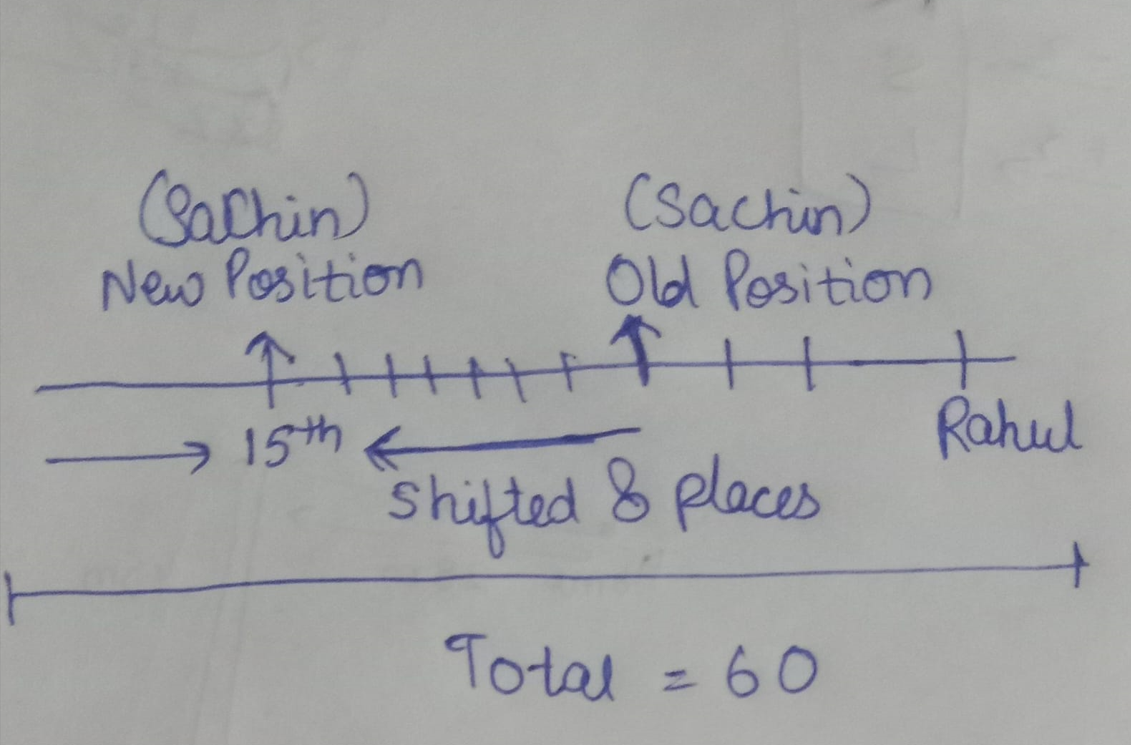 (Sachin) (Sachin)
New Position Old Position
15th Rahul
Shifted 8 places
Total = 60